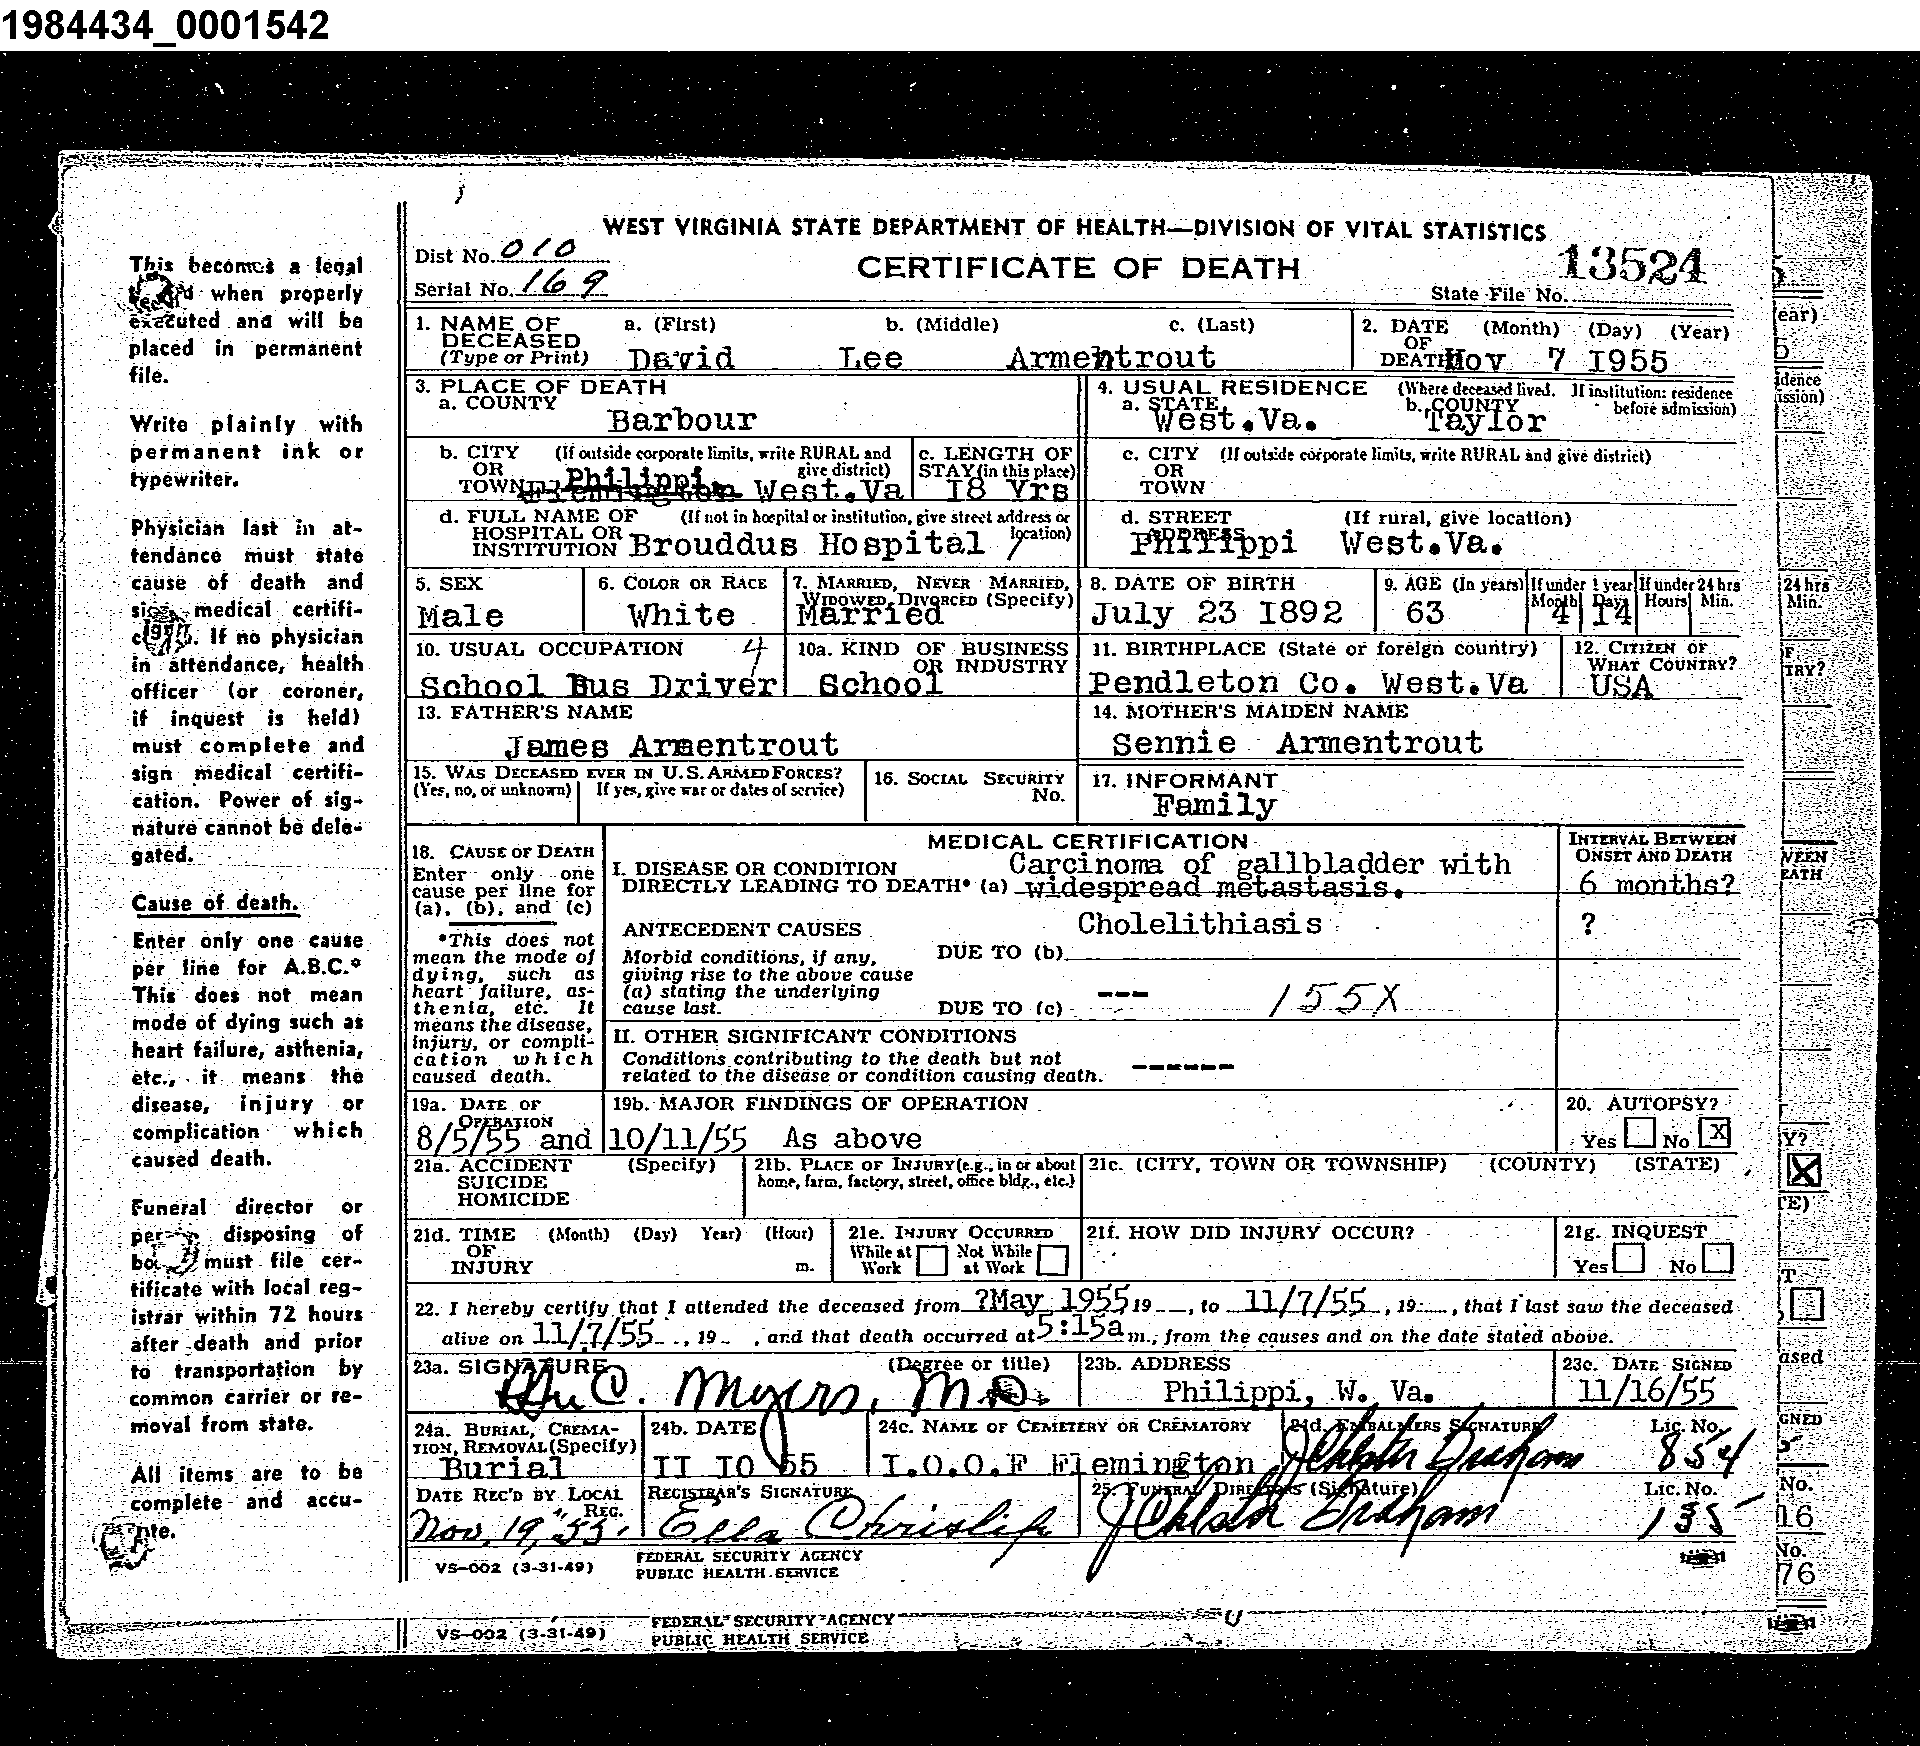 1984434_0001542
WEST VIRGINIA STATE DEPARTMENT OF HEALTH—DIVISION OF VITAL STATISTICS
Dist No. 010
CERTIFICATE OF DEATH
13524
Serial No. 169
State File No.
1. NAME OF DECEASED (Type or Print)
a. (First) b. (Middle) c. (Last)
David Lee Armentrout
2. DATE OF DEATH (Month) (Day) (Year)
Nov 7 I955
3. PLACE OF DEATH
a. COUNTY
Barbour
4. USUAL RESIDENCE (Where deceased lived. If institution: residence before admission)
a. STATE West.Va. b. COUNTY Taylor
b. CITY OR TOWN (If outside corporate limits, write RURAL and give district)
Philippi West.Va
c. LENGTH OF STAY (in this place)
I8 Yrs
c. CITY OR TOWN (If outside corporate limits, write RURAL and give district)
d. FULL NAME OF HOSPITAL OR INSTITUTION (If not in hospital or institution, give street address or location)
Brouddus Hospital
d. STREET ADDRESS (If rural, give location)
Philippi West.Va.
5. SEX
Male
6. COLOR OR RACE
White
7. MARRIED, NEVER MARRIED, WIDOWED, DIVORCED (Specify)
Married
8. DATE OF BIRTH
July 23 I892
9. AGE (In years)
63
If under 1 year Month Days
4 I4
If under 24 hrs Hours Min.
10. USUAL OCCUPATION 4
School Bus Driver
10a. KIND OF BUSINESS OR INDUSTRY
School
11. BIRTHPLACE (State or foreign country)
Pendleton Co. West.Va
12. CITIZEN OF WHAT COUNTRY?
USA
13. FATHER'S NAME
James Armentrout
14. MOTHER'S MAIDEN NAME
Sennie Armentrout
15. WAS DECEASED EVER IN U.S. ARMED FORCES?
(Yes, no, or unknown) If yes, give war or dates of service)
16. SOCIAL SECURITY No.
17. INFORMANT
Family
18. CAUSE OF DEATH
Enter only one cause per line for (a), (b), and (c)
*This does not mean the mode of dying, such as heart failure, asthenia, etc. It means the disease, injury, or complication which caused death.
MEDICAL CERTIFICATION
I. DISEASE OR CONDITION DIRECTLY LEADING TO DEATH* (a)
Carcinoma of gallbladder with
widespread metastasis.
INTERVAL BETWEEN ONSET AND DEATH
6 months?
ANTECEDENT CAUSES
Cholelithiasis ?
Morbid conditions, if any, giving rise to the above cause (a) stating the underlying cause last.
DUE TO (b)
DUE TO (c) --- 155X
II. OTHER SIGNIFICANT CONDITIONS
Conditions contributing to the death but not related to the disease or condition causing death. ------
19a. DATE OF OPERATION
8/5/55 and
19b. MAJOR FINDINGS OF OPERATION
10/11/55 As above
20. AUTOPSY?
Yes No X
21a. ACCIDENT SUICIDE HOMICIDE (Specify)
21b. PLACE OF INJURY (e.g., in or about home, farm, factory, street, office bldg., etc.)
21c. (CITY, TOWN OR TOWNSHIP) (COUNTY) (STATE)
21d. TIME OF INJURY (Month) (Day) Year) (Hour) m.
21e. INJURY OCCURRED
While at Work Not While at Work
21f. HOW DID INJURY OCCUR?
21g. INQUEST
Yes No
22. I hereby certify that I attended the deceased from ?May 1955 19__, to 11/7/55, 19__, that I last saw the deceased
alive on 11/7/55, 19__, and that death occurred at 5:15a m., from the causes and on the date stated above.
23a. SIGNATURE (Degree or title)
C. Myers, M.D.
23b. ADDRESS
Philippi, W. Va.
23c. DATE SIGNED
11/16/55
24a. BURIAL, CREMATION, REMOVAL (Specify)
Burial
24b. DATE
II IO 55
24c. NAME OF CEMETERY OR CREMATORY
I.O.O.F Flemington
24d. EMBALMERS SIGNATURE Lic. No.
Graham 854
DATE REC'D BY LOCAL REG.
Nov. 19, 55.
REGISTRAR'S SIGNATURE
Ella Chrislip
25. FUNERAL DIRECTORS (Signature) Lic. No.
Graham 135
VS-002 (3-31-49)
FEDERAL SECURITY AGENCY
PUBLIC HEALTH SERVICE
VS-002 (3-31-49)
FEDERAL SECURITY AGENCY
PUBLIC HEALTH SERVICE
This becomes a legal
when properly
executed and will be
placed in permanent
file.
Write plainly with
permanent ink or
typewriter.
Physician last in at-
tendance must state
cause of death and
sign medical certifi-
If no physician
in attendance, health
officer (or coroner,
if inquest is held)
must complete and
sign medical certifi-
cation. Power of sig-
nature cannot be dele-
gated.
Cause of death.
Enter only one cause
per line for A.B.C.*
This does not mean
mode of dying such as
heart failure, asthenia,
etc., it means the
disease, injury or
complication which
caused death.
Funeral director or
disposing of
must file cer-
tificate with local reg-
istrar within 72 hours
after death and prior
to transportation by
common carrier or re-
moval from state.
All items are to be
complete and accu-